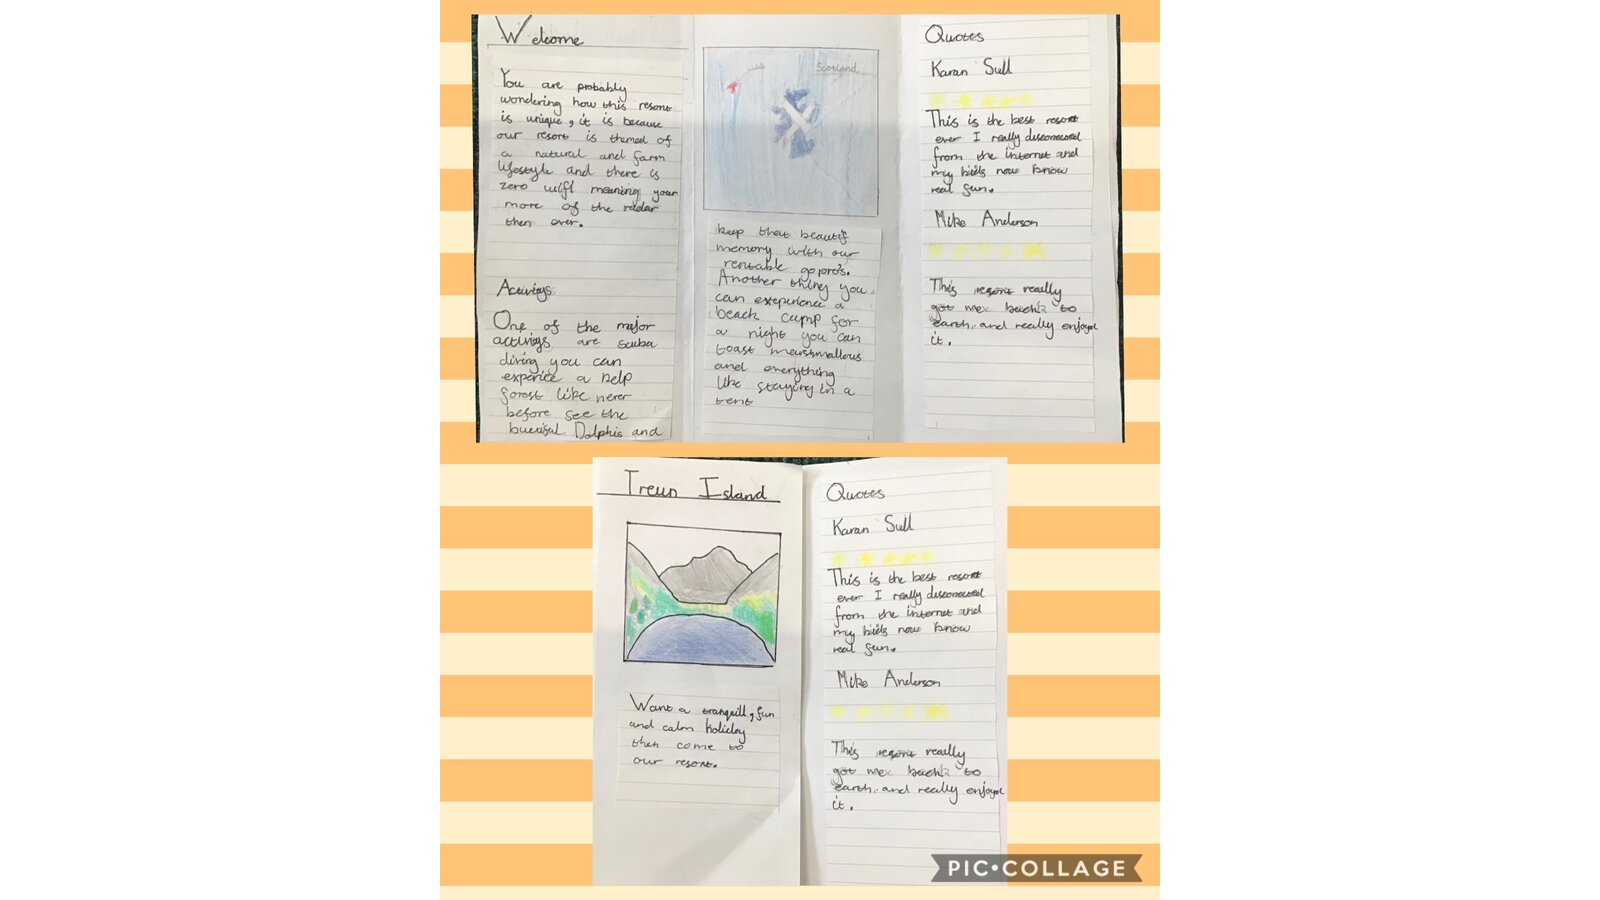 Welcome
You are probably
wondering how this resort
is unique, it is because
our resort is themed of
a natural and farm
lifestyle and there is
zero wifi meaning your
more of the radar
then over.
Activitys
One of the major
activitys are scuba
diving you can
experice a help
forest like never
before see the
Dolphis and
Scotland
keep that beautif
memory with our
rentable gopro's.
Another thing you
can exeperience a
beach camp for
a night you can
toast marshmallous
and everything
like staying in a
tent
Quotes
Karan Sull
This is the best resort
ever I really disconnected
from the internet and
my now know
real fun.
Mike Anderson
This resort really
got me back to
earth. and really enjoyed
it.
Treun Island
Want a tranquill, fun
and calm holiday
then come to
our resort.
Quotes
Karan Sull
This is the best resort
ever I really disconnected
from the internet and
my now know
real fun.
Mike Anderson
This resort really
got me back to
earth. and really enjoyed
it.
PIC•COLLAGE